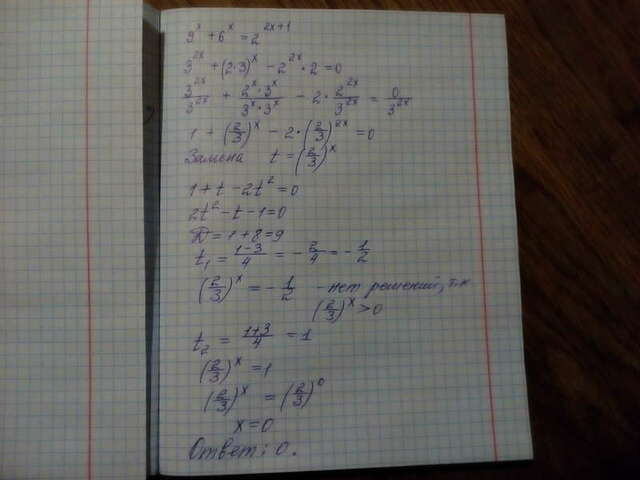 9^x + 6^x = 2^{2x+1}
3^{2x} + (2·3)^x − 2^{2x}·2 = 0
3^{2x}/3^{2x} + 2^x·3^x/3^x·3^x − 2·2^{2x}/3^{2x} = 0/3^{2x}
1 + (2/3)^x − 2·(2/3)^{2x} = 0
Замена t = (2/3)^x
1 + t − 2t² = 0
2t² − t − 1 = 0
D = 1 + 8 = 9
t₁ = (1−3)/4 = −2/4 = −1/2
(2/3)^x = −1/2 - нет решений, т.к
(2/3)^x > 0
t₂ = (1+3)/4 = 1
(2/3)^x = 1
(2/3)^x = (2/3)^0
x = 0
Ответ: 0.